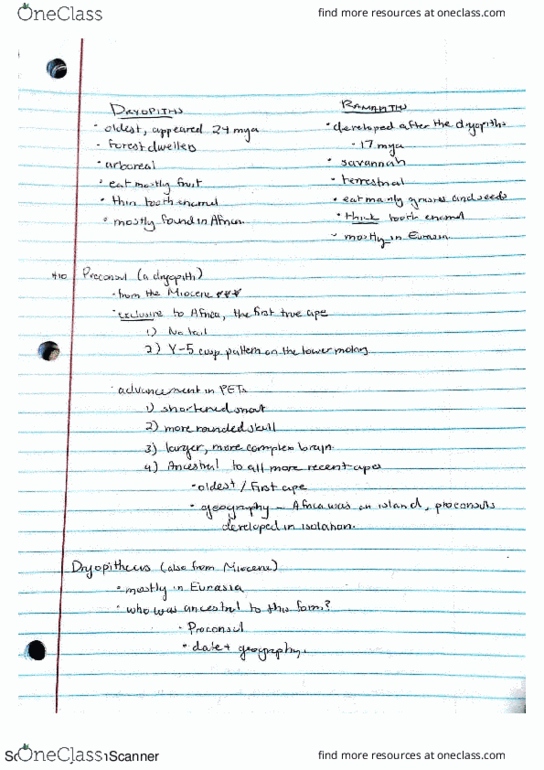 OneClass
find more resources at oneclass.com
DRYOPITHS
• oldest, appeared 24 mya
• forest dwellers
• arboreal
• eat mostly fruit
• thin tooth enamel
• mostly found in Africa.
RAMAPITHS
• developed after the dryopiths
• 17 mya
• savannah
• terrestrial
• eat mainly grasses and seeds
• thick tooth enamel
- mostly in Eurasia
Proconsul (a dryopith)
• from the Miocene ***
• exclusive to Africa, the first true ape
1) No tail
2) Y-5 cusp pattern on the lower molars
• advancement in PETs
1) shortened snout
2) more rounded skull
3) larger, more complex brain
4) Ancestral to all more recent apes
• oldest / First ape
• geography - Africa was an island, proconsuls
developed in isolation.
Dryopithecus (also from Miocene)
• mostly in Eurasia
• who was ancestral to this form?
• Proconsul
• date + geography.
OneClass
Scanner
find more resources at oneclass.com